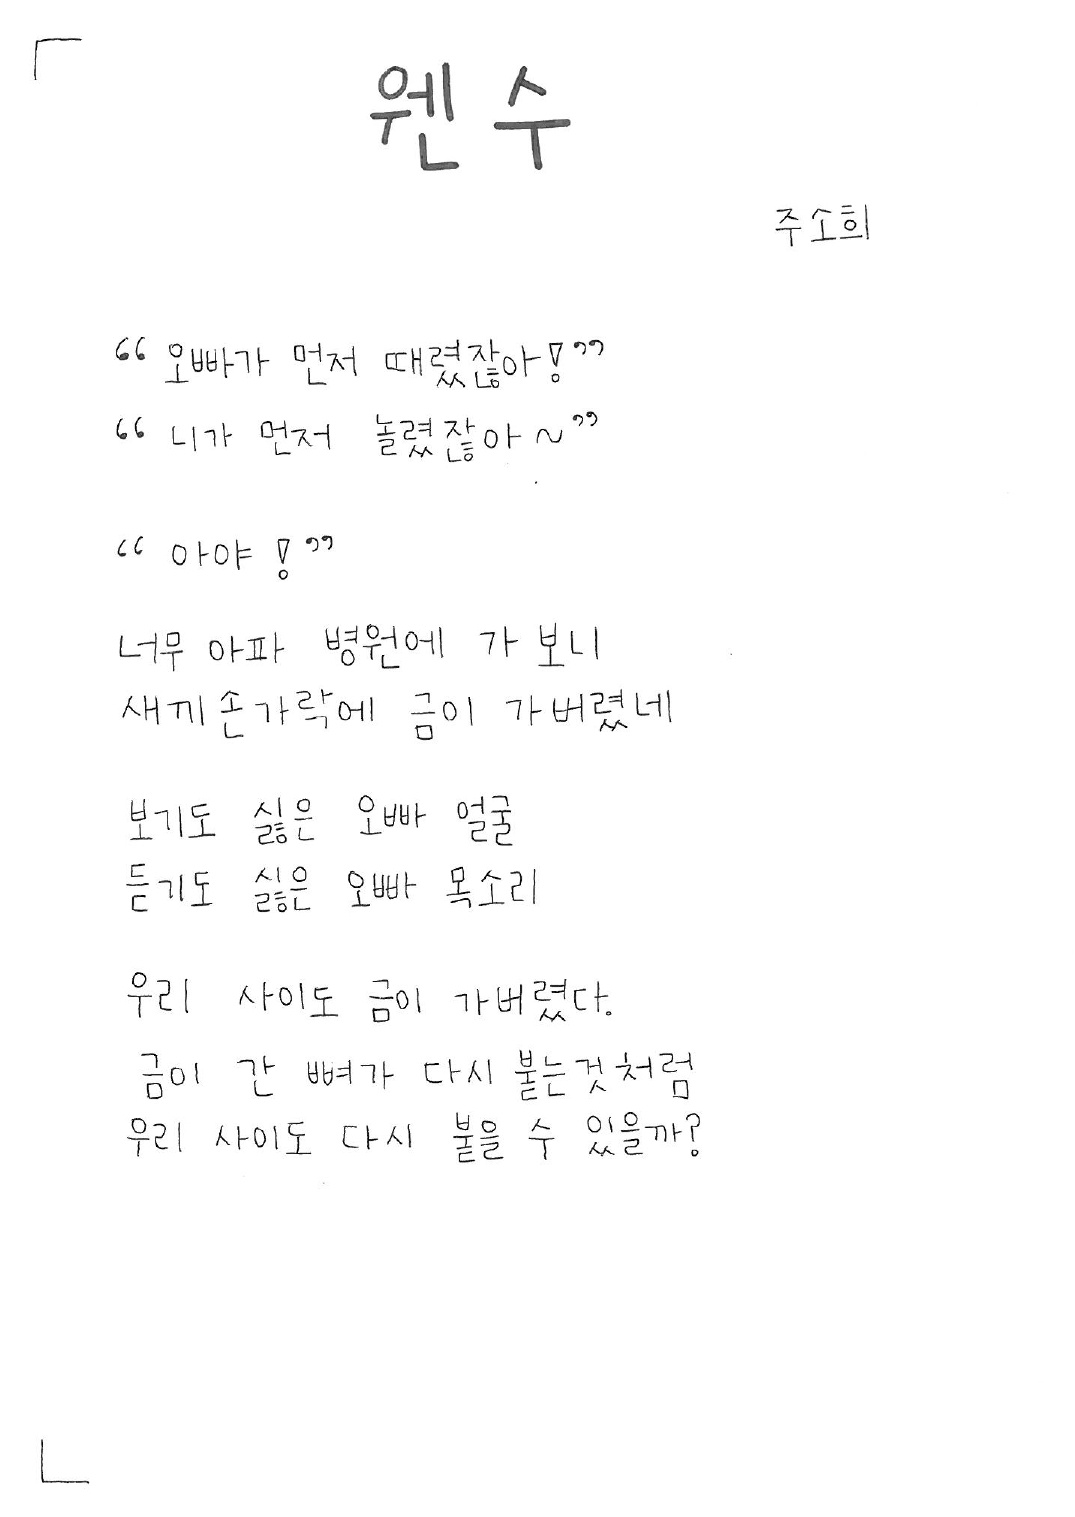 웬수
주소희
“오빠가 먼저 때렸잖아!”
“니가 먼저 놀렸잖아~”
“아야!”
너무 아파 병원에 가 보니
새끼손가락에 금이 가버렸네
보기도 싫은 오빠 얼굴
듣기도 싫은 오빠 목소리
우리 사이도 금이 가버렸다.
금이 간 뼈가 다시 붙는것처럼
우리 사이도 다시 붙을 수 있을까?